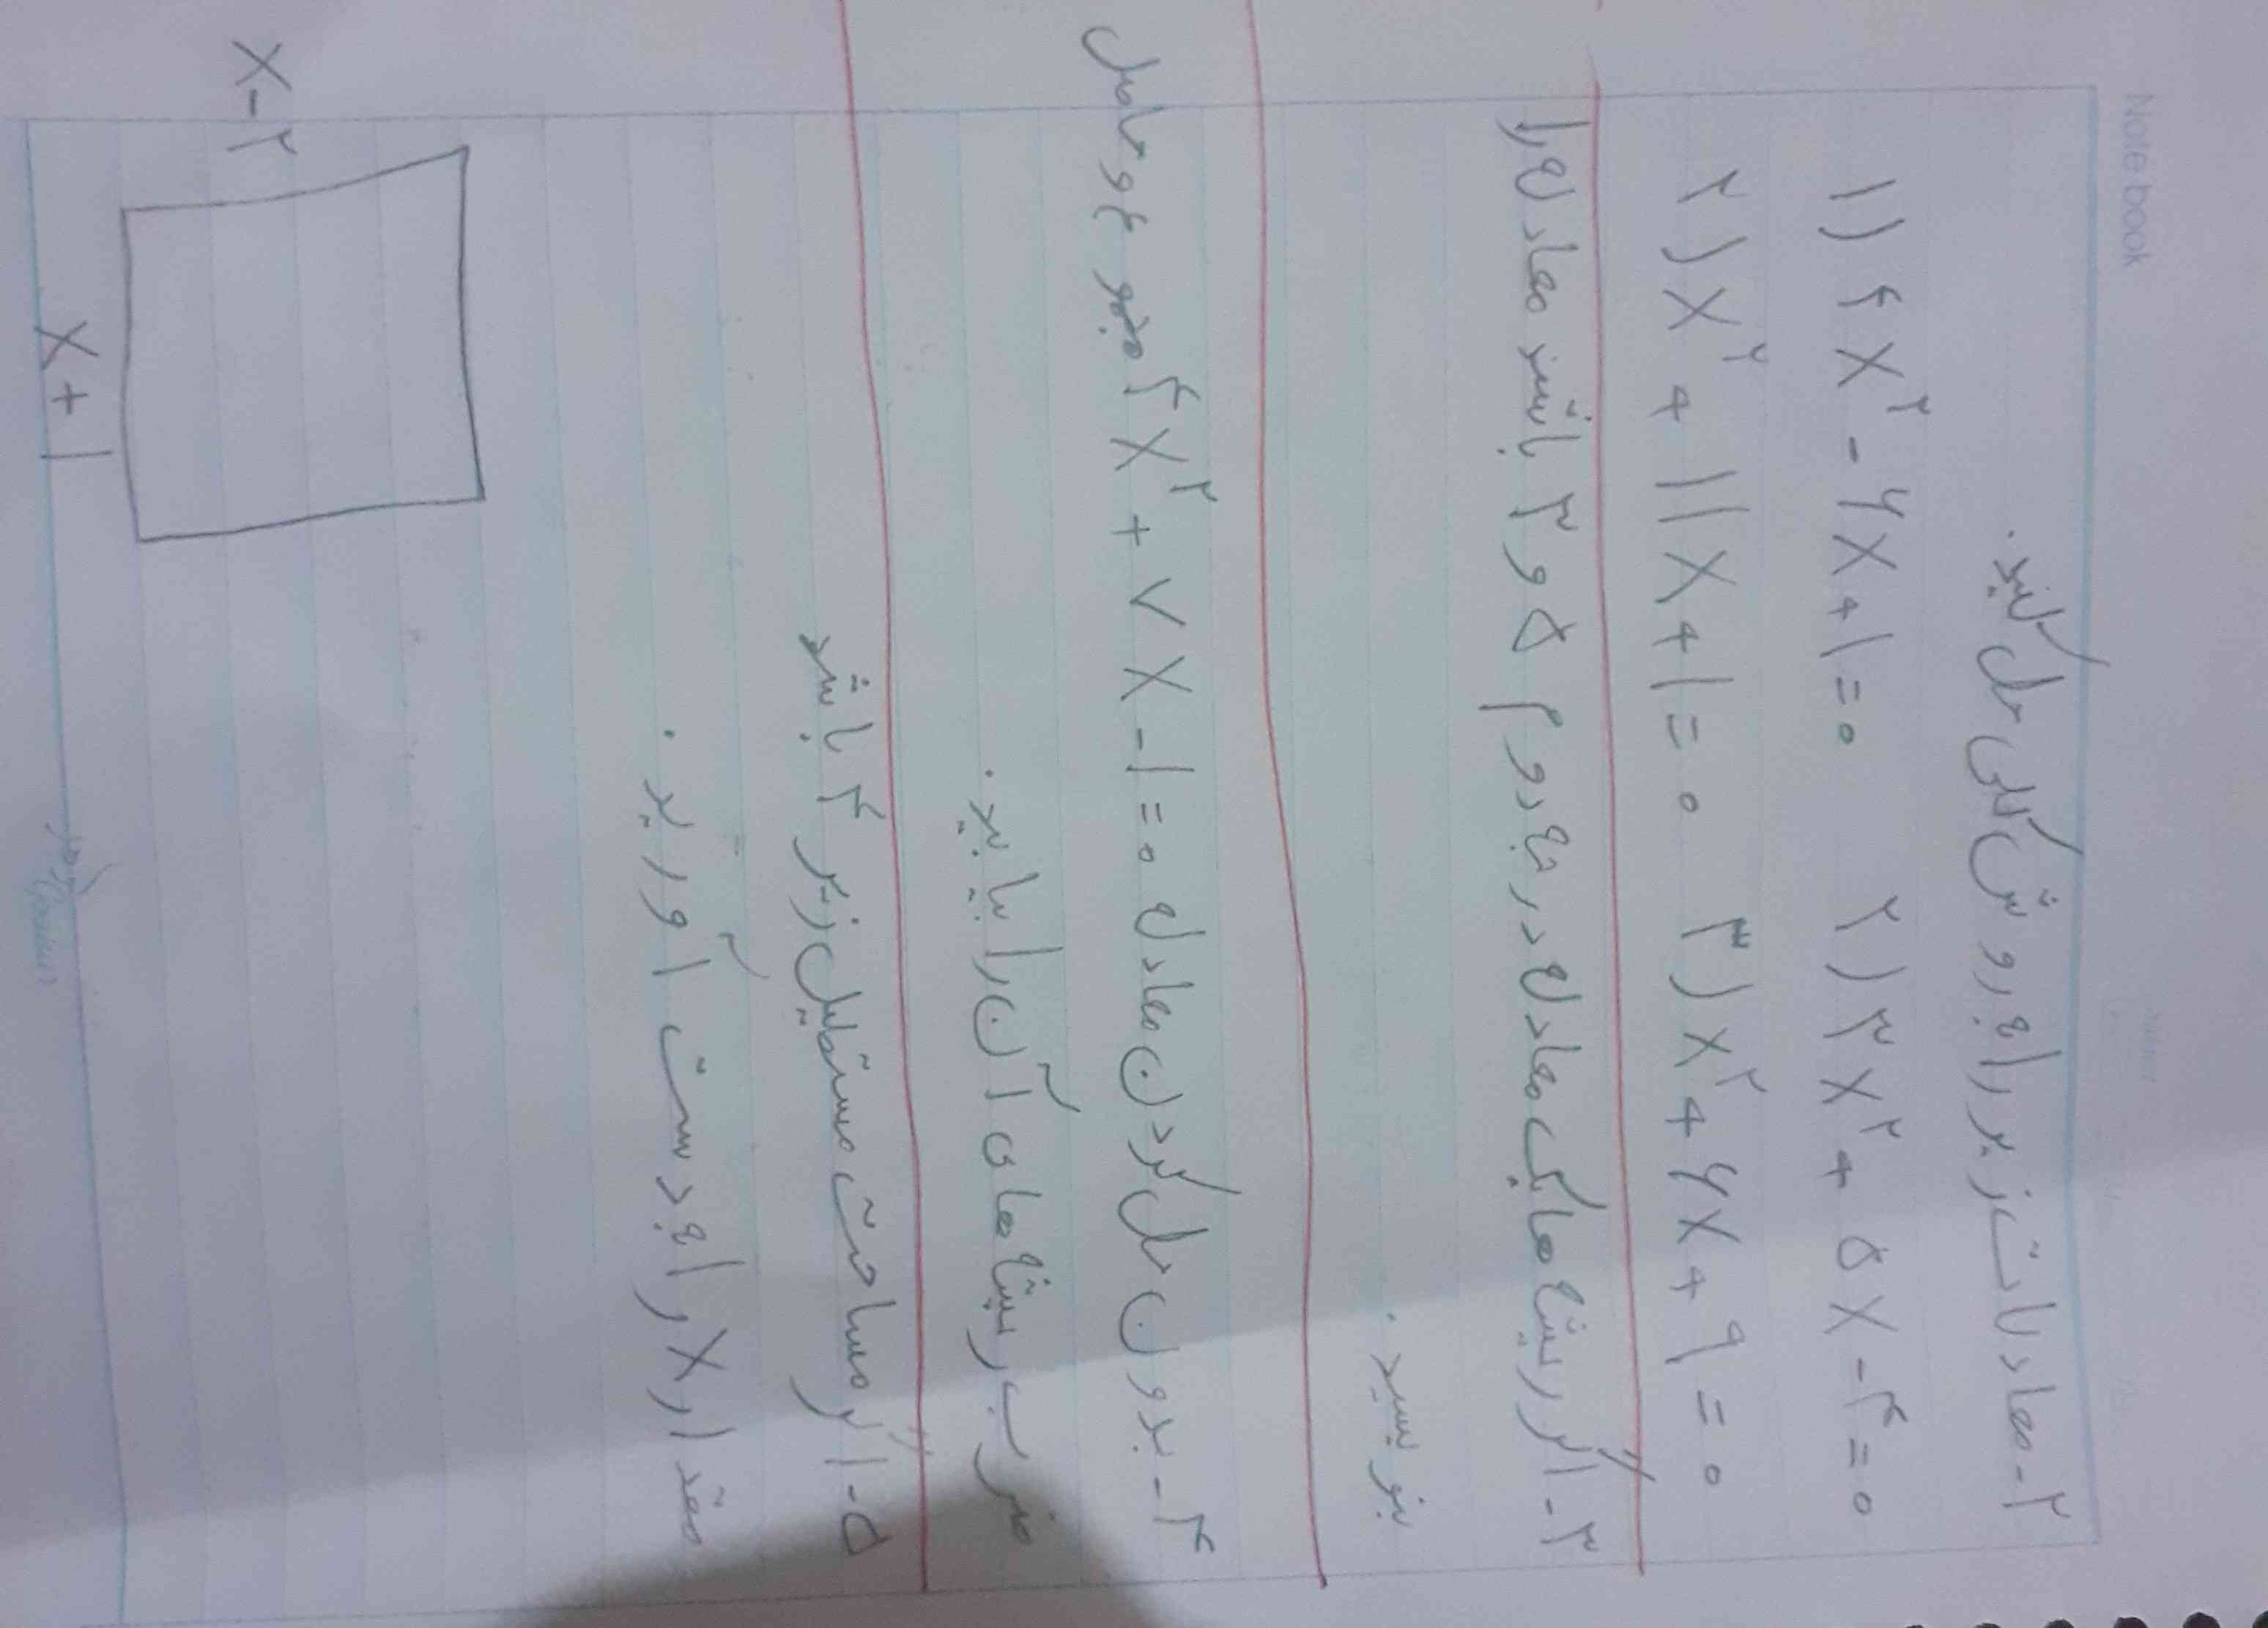 Note book
۲- معادلات زیر را به روش کلی حل کنید.
۱) ۴x² - ۶x + ۱ = ۰ ۲) ۳x² + ۵x - ۴ = ۰
۲) x² + ۱۱x + ۱ = ۰ ۳) x² + ۶x + ۹ = ۰
۳- اگر ریشه های یک معادله درجه دوم ۵ و ۳ باشد معادله را
بنویسید.
۴- بدون حل کردن معادله ۴x² + ۷x - ۱ = ۰ مجموع و حاصل
ضرب ریشه های آن را بیابید.
۵- اگر مساحت مستطیل زیر ۴ باشد
مقدار x را به دست آورید.
x-۲
x+۱